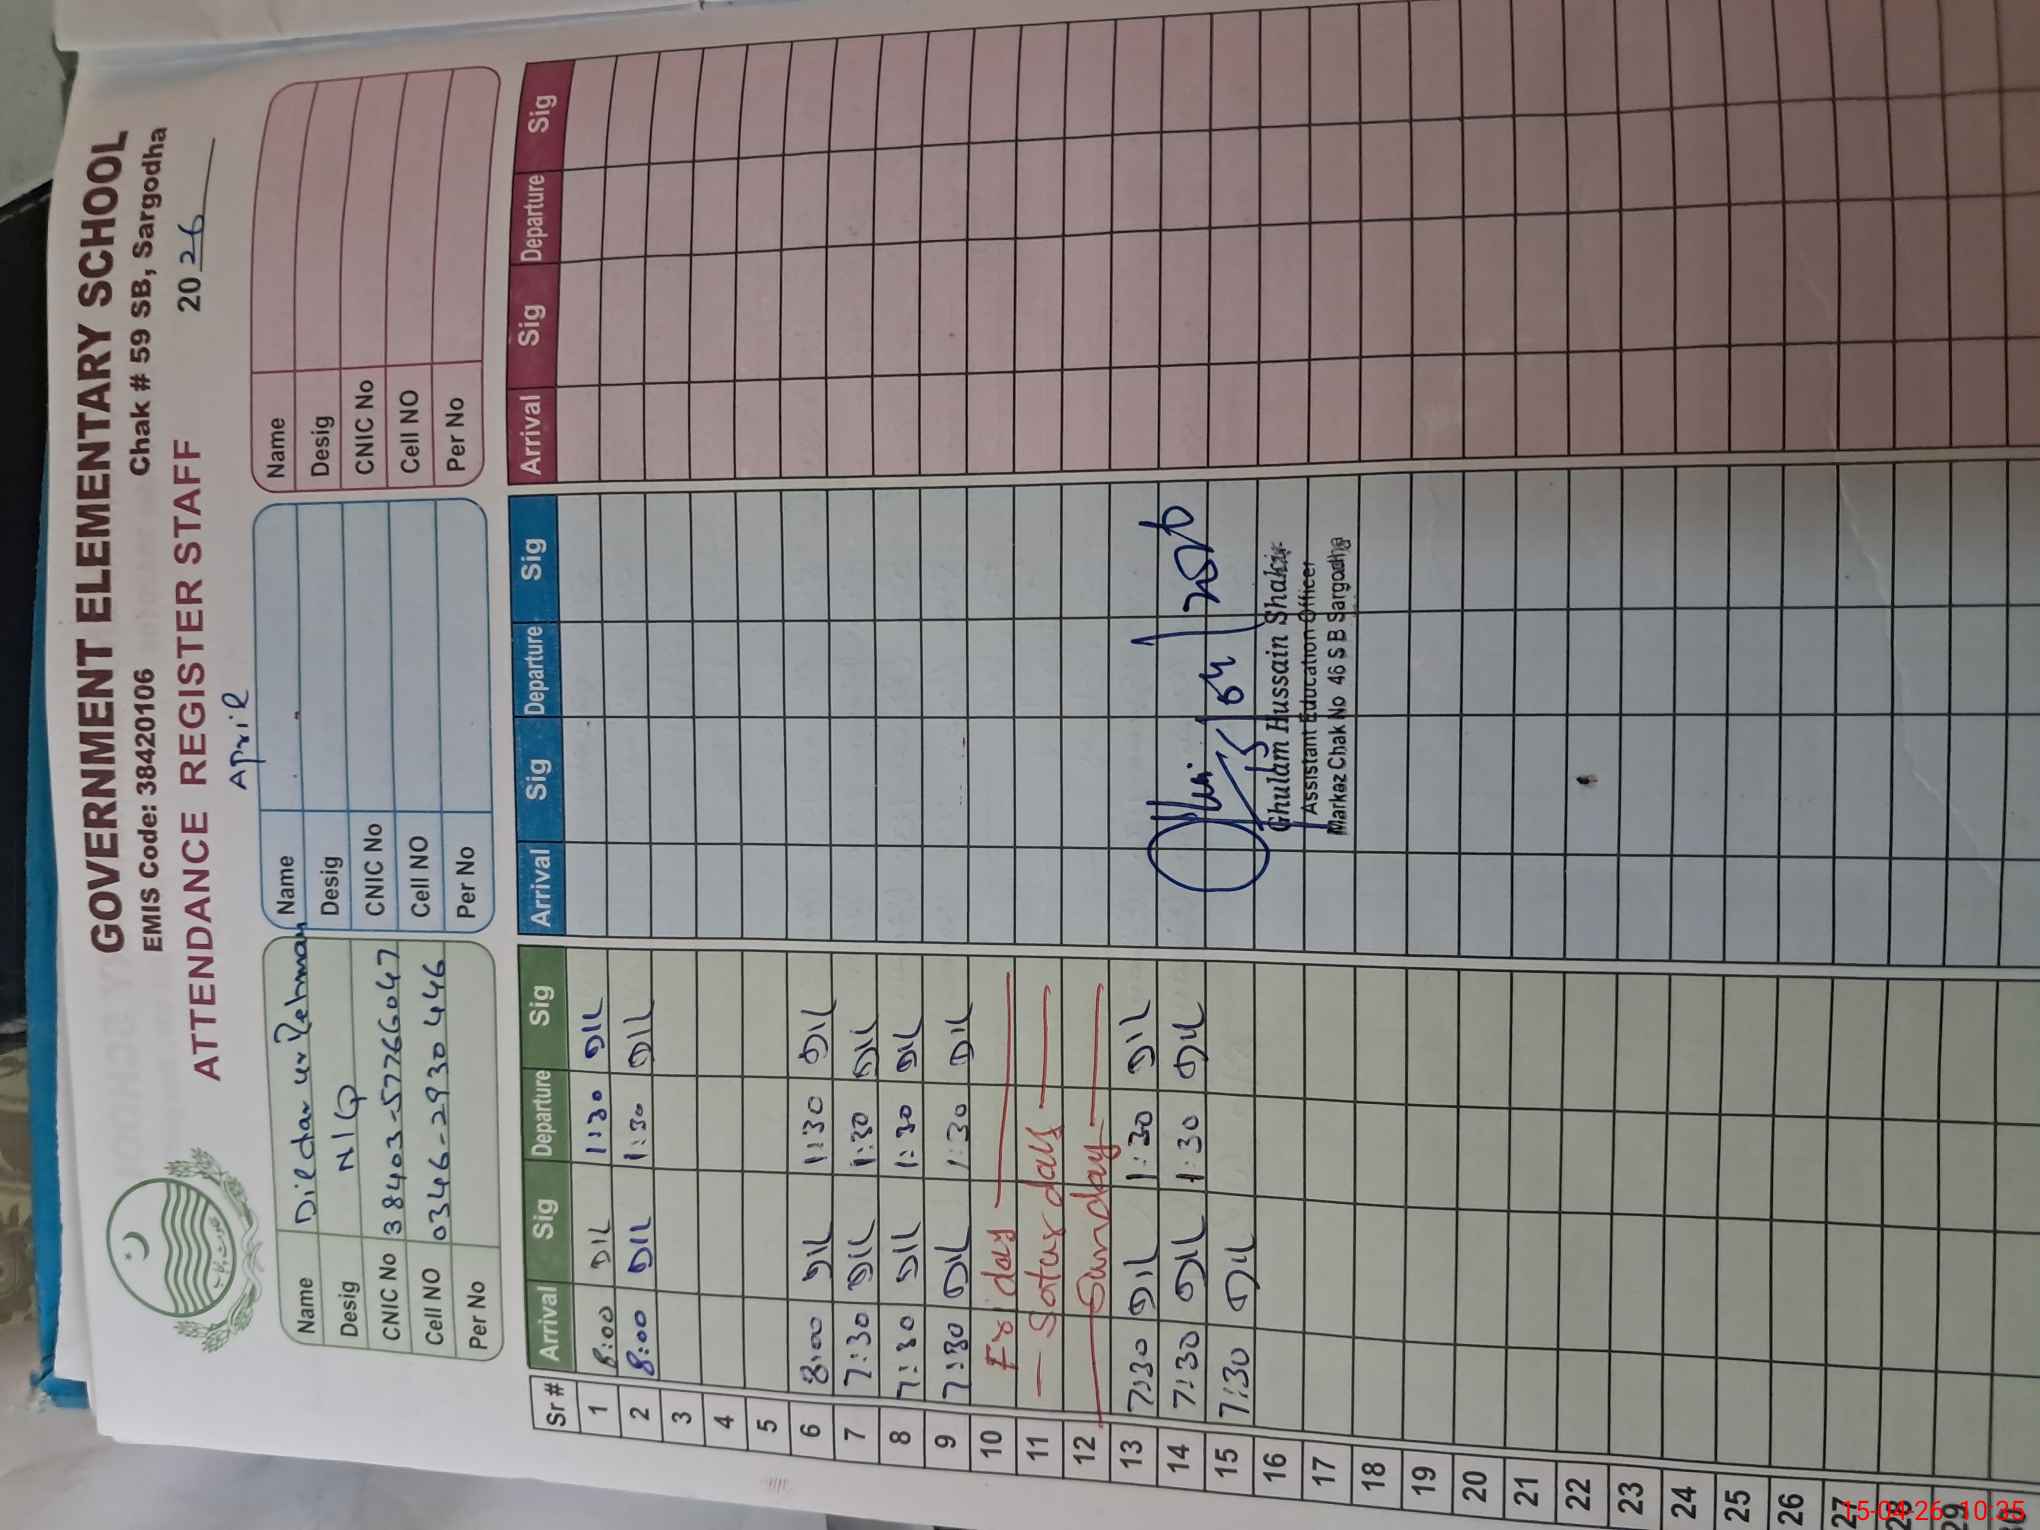 GOVERNMENT ELEMENTARY SCHOOL
EMIS Code: 38420106 Chak # 59 SB, Sargodha
ATTENDANCE REGISTER STAFF 2026
April
Name Dildar ur Rehman
Desig N/Q
CNIC No 38403-5776604-7
Cell NO 0346-2930446
Per No
Name
Desig
CNIC No
Cell NO
Per No
Name
Desig
CNIC No
Cell NO
Per No
Sr# Arrival Sig Departure Sig Arrival Sig Departure Sig Arrival Sig Departure Sig
1 8:00 DIL 11:30 DIL
2 8:00 DIL 1:30 DIL
3
4
5
6 8:00 DIL 1:30 DIL
7 7:30 DIL 1:30 DIL
8 7:30 DIL 1:30 DIL
9 7:30 DIL 1:30 DIL
10 Friday
11 Saturday
12 Sunday
13 7:30 DIL 1:30 DIL
14 7:30 DIL 1:30 DIL
15 7:30 DIL
16
17
18
19
20
21
22
23
24
25
26
27
28
29
Ghulam Hussain Shakir
Assistant Education Officer
Markaz Chak No 46 S B Sargodha
15-04-26 10:35